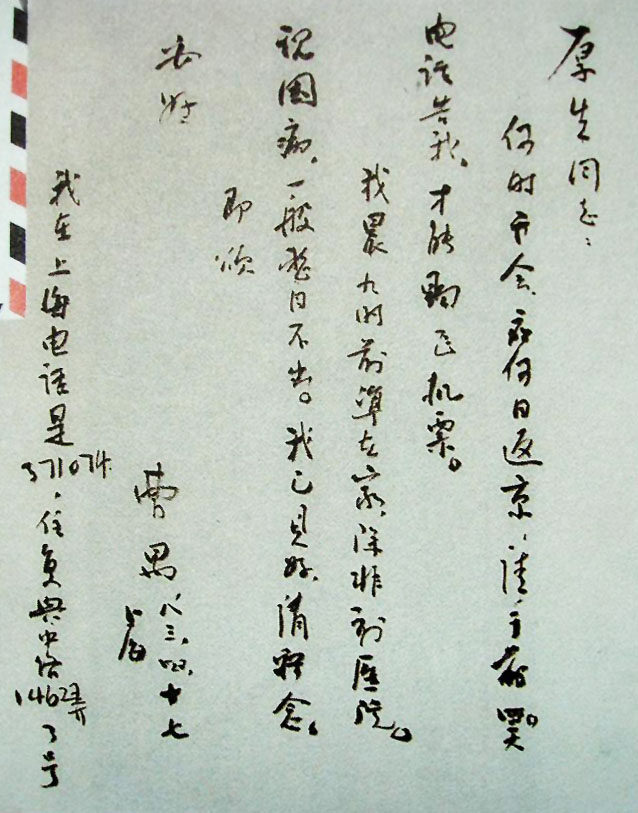 厚生同志：
何时开会，我何日返京，请于前四天
电话告我，才能购飞机票。
我晨九时前准在家，除非到医院。
视国病，一般整日不出。我已见好，请释念。
即颂
安好
曹禺 八三、四、十七
上海
我在上海电话是371074，住复兴中路1462弄3号